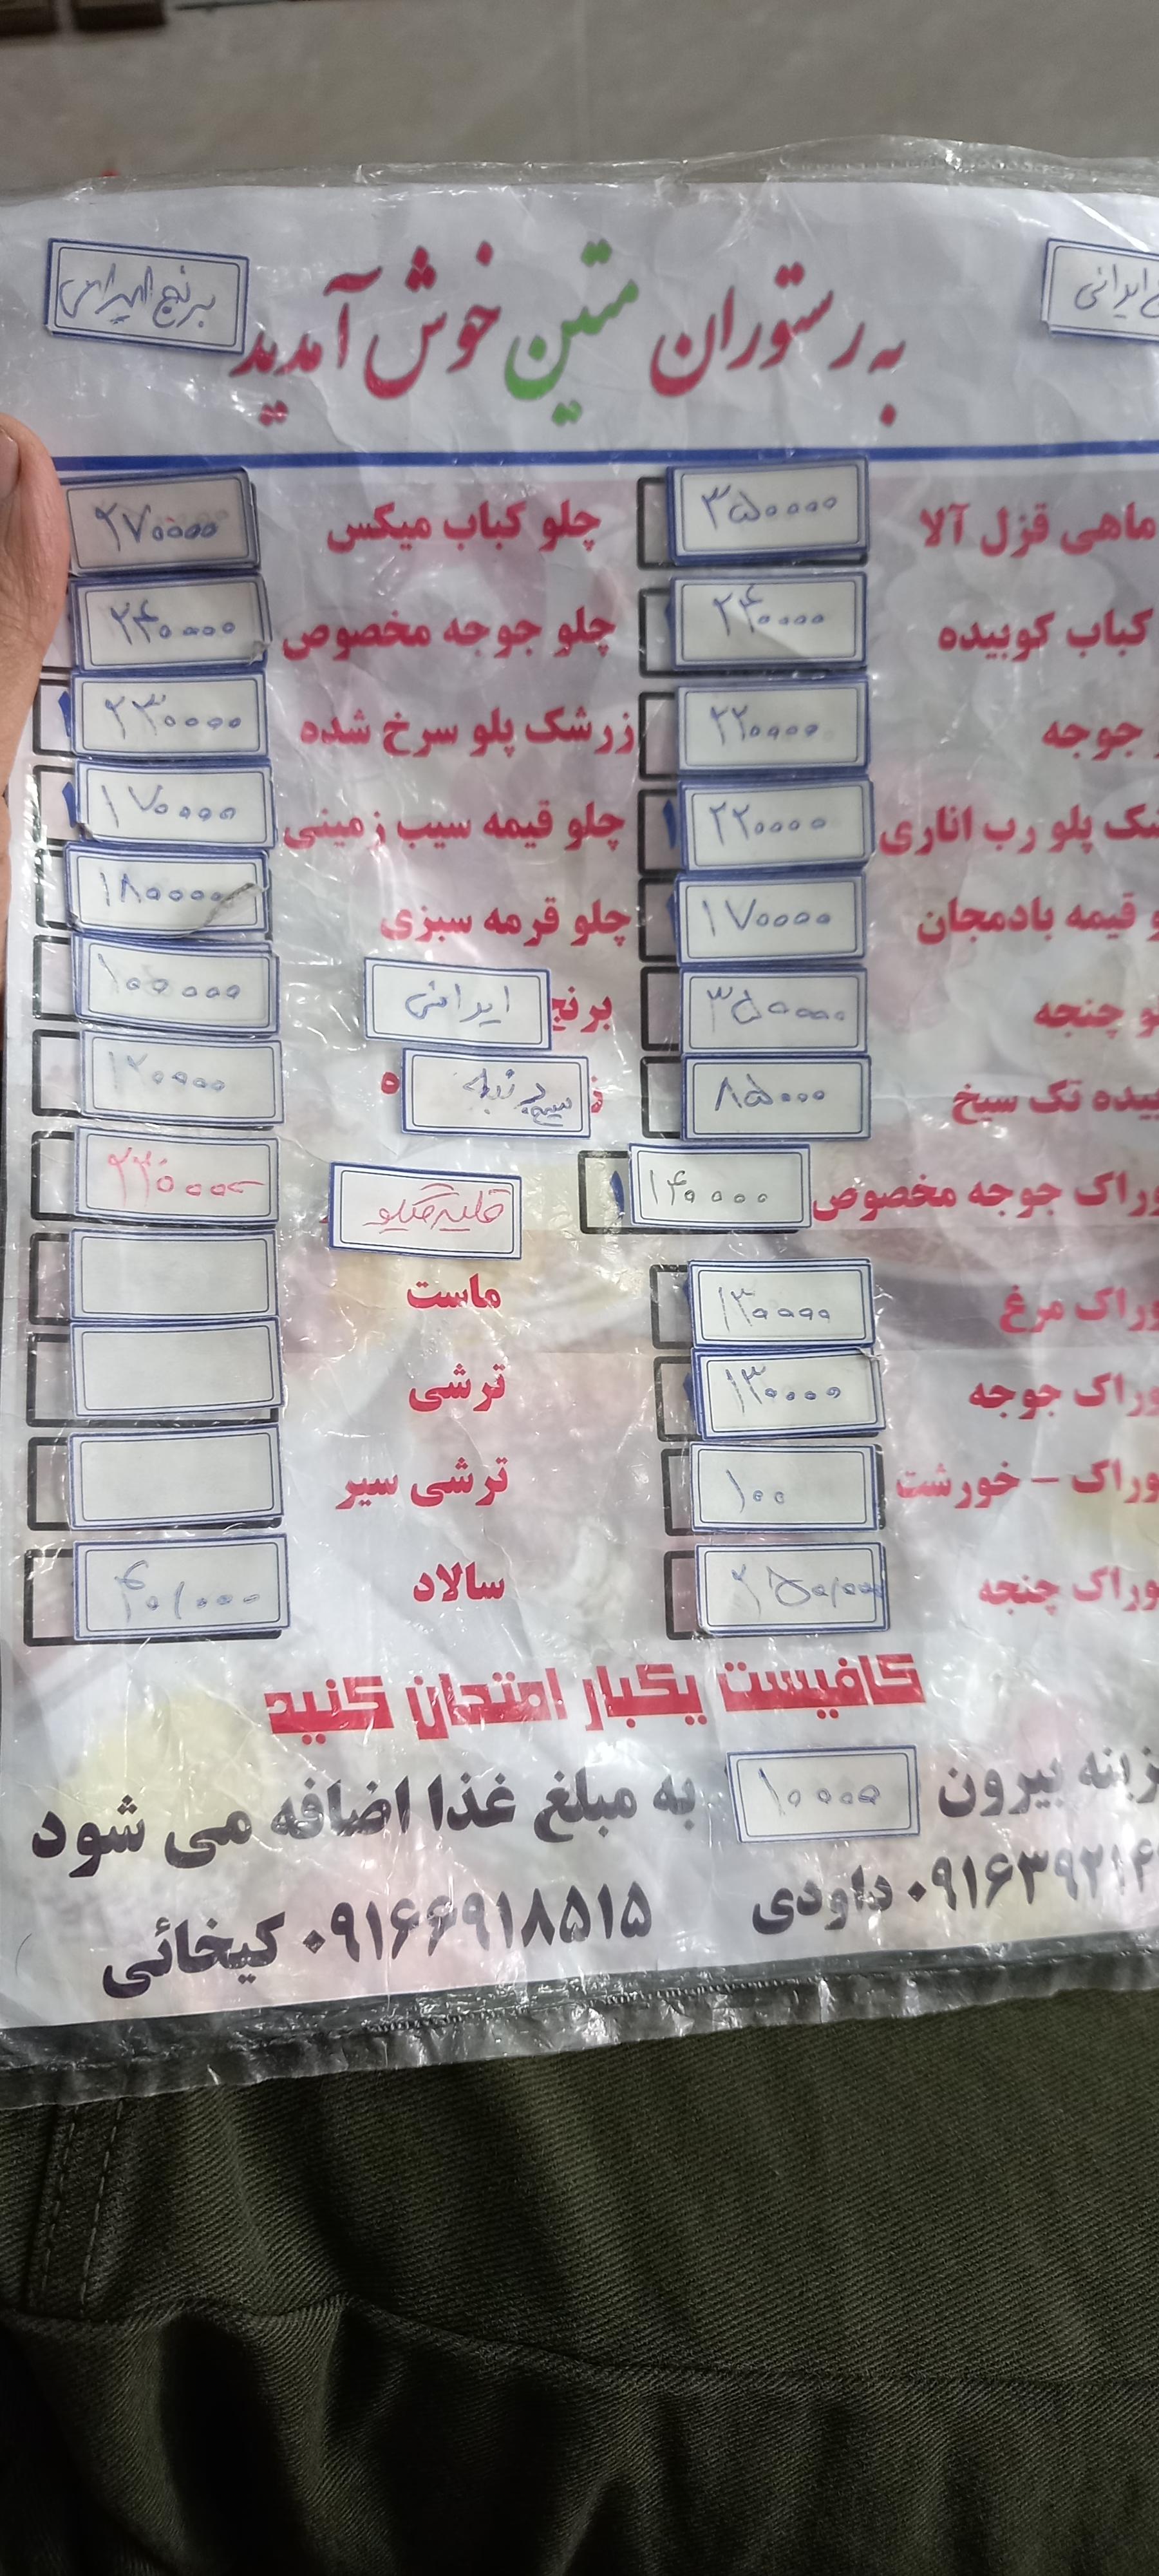 برنج ایرانی
به رستوران متین خوش آمدید
ایرانی
ماهی قزل آلا ۳۵۰۰۰۰
کباب کوبیده ۲۴۰۰۰۰
جوجه ۲۲۰۰۰۰
پلو رب اناری ۲۲۰۰۰۰
قیمه بادمجان ۱۷۰۰۰۰
چنجه ۳۵۰۰۰۰
تک سیخ ۸۵۰۰۰
جوجه مخصوص ۱۴۰۰۰۰
مرغ ۱۳۰۰۰۰
جوجه ۱۳۰۰۰۰
خورشت ۱۰۰
چنجه ۲۵۰/۰۰۰
چلو کباب میکس ۲۷۰۰۰۰
چلو جوجه مخصوص ۲۴۰۰۰۰
زرشک پلو سرخ شده ۲۳۰۰۰۰
چلو قیمه سیب زمینی ۱۷۰۰۰۰
چلو قرمه سبزی ۱۸۰۰۰۰
برنج ایرانی ۱۰۰۰۰۰
۱۲۰۰۰۰
ماست
ترشی
ترشی سیر
سالاد ۴۰/۰۰۰
کافیست یکبار امتحان کنید
بیرون ۱۰۰۰۰ به مبلغ غذا اضافه می شود
داودی
۰۹۱۶۶۹۱۸۵۱۵ کیخائی